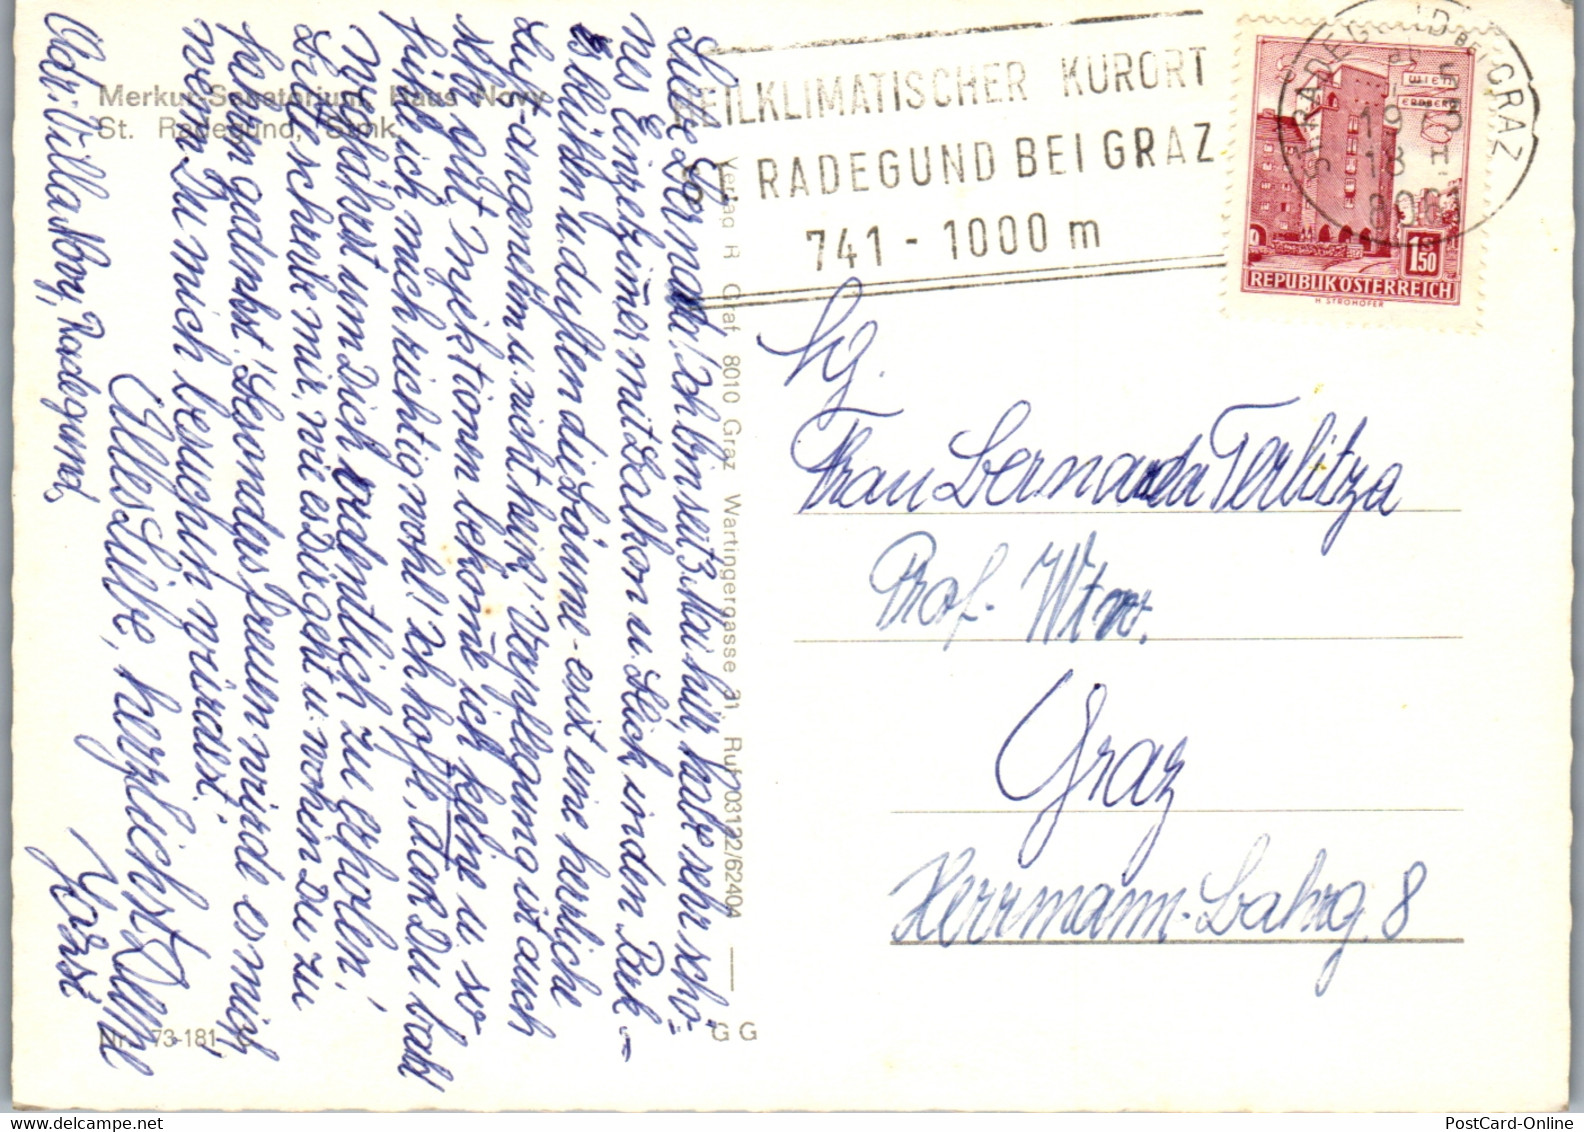 Merkur-Sanatorium, Haus Novy
St. Radegund, Stmk.
Liebe Bernada! Ich bin seit 3. Mai hier, habe sehr schö=
nes Einzelzimer mit Balkon u. Blick in den Park -
es blühen u. duften die Bäume - es ist eine herrliche
Luft - angenehm u. nicht heiß! Verpflegung ist auch
sehr gut, Injektionen bekome ich keine u. so
fühle ich mich richtig wohl! Ich hoffe, daß Du bald
wegfährst um Dich ordentlich zu erholen!
Bitte schreibe mir, wie es Dir geht u. wohin Du zu
fahren gedenkst! Besonders freuen würde es mich,
wenn Du mich besuchen würdest.
Alles Liebe, herzlichst
Adr. Villa Novy, Radegund,
Verlag R. Graf 8010 Graz Wartingergasse 31 Ruf 03122/62404
Nr. 73-181
G G
HEILKLIMATISCHER KURORT
ST. RADEGUND BEI GRAZ
741 - 1000 m
ST. RADEGUND BEI GRAZ
1973
18 H
8061
WIEN
ERDBERG
1.50
REPUBLIK ÖSTERREICH
H. STROHOFER
Hg.
Frau Bernada Terlitza
Prof. Wtwe.
Graz
Herrmann-Bahrg. 8